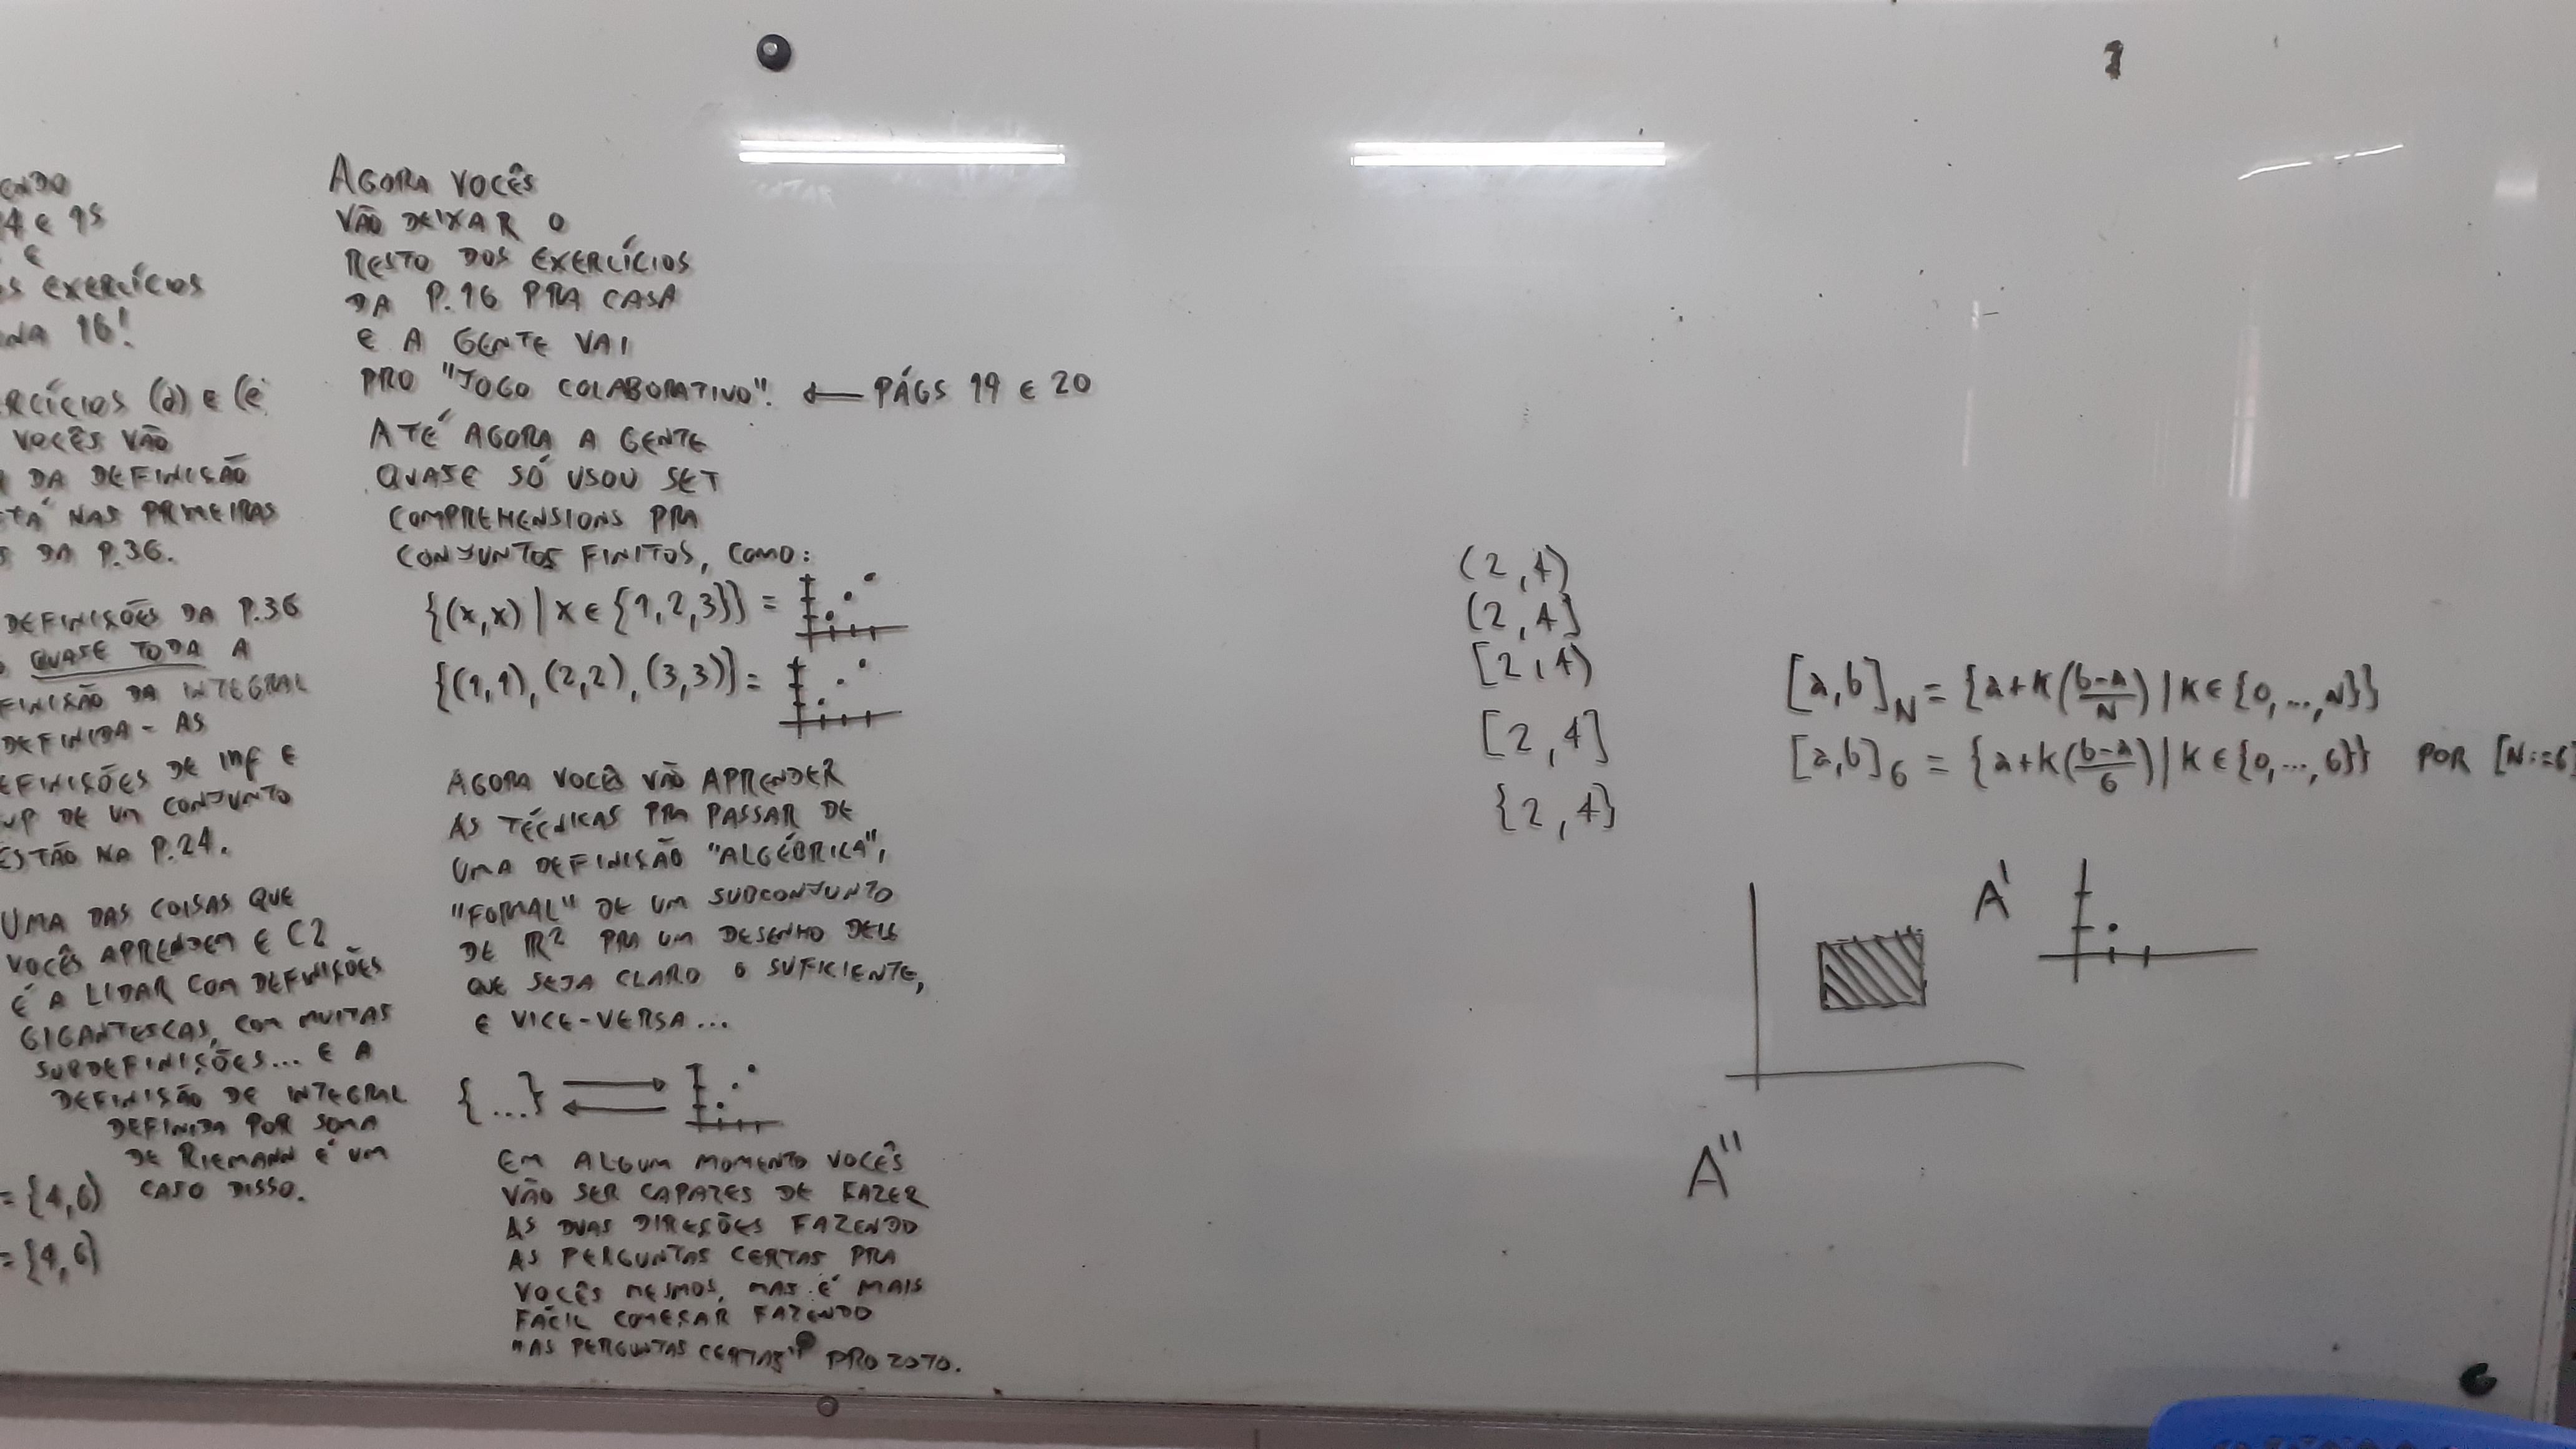 4 e 15
E
EXERCÍCIOS
16!
(d) E (e
VOCÊS VÃO
DA DEFINIÇÃO
NAS PRIMEIRAS
DA P.36.
DEFINIÇÕES DA P.36
QUASE TODA A
DA INTEGRAL
DEFINIDA - AS
DE INF E
DE UM CONJUNTO
NA P.24.
UMA DAS COISAS QUE
VOCÊS APRENDEM E C2
É A LIDAR COM DEFINIÇÕES
GIGANTESCAS, COM MUITAS
SUBDEFINIÇÕES... E A
DEFINIÇÃO DE INTEGRAL
DEFINIDA POR SOMA
DE RIEMANN É UM
CASO DISSO.
= {4,6}
= {4,6}
AGORA VOCÊS
VÃO DEIXAR O
RESTO DOS EXERCÍCIOS
DA P.16 PRA CASA
E A GENTE VAI
PRO "JOGO COLABORATIVO". ← PÁGS 19 E 20
ATÉ AGORA A GENTE
QUASE SÓ USOU SET
COMPREHENSIONS PRA
CONJUNTOS FINITOS, COMO:
{(x,x) | x ∈ {1,2,3}} =
{(1,1),(2,2),(3,3)} =
AGORA VOCÊS VÃO APRENDER
AS TÉCNICAS PRA PASSAR DE
UMA DEFINIÇÃO "ALGÉBRICA",
"FORMAL" DE UM SUBCONJUNTO
DE ℝ² PRA UM DESENHO DELE
QUE SEJA CLARO O SUFICIENTE,
E VICE-VERSA...
{...}
EM ALGUM MOMENTO VOCÊS
VÃO SER CAPAZES DE FAZER
AS DUAS DIREÇÕES FAZENDO
AS PERGUNTAS CERTAS PRA
VOCÊS MESMOS, MAS É MAIS
FÁCIL COMEÇAR FAZENDO
"AS PERGUNTAS CERTAS" PRO ZOTO.
(2,4)
(2,4]
[2,4)
[2,4]
{2,4}
[a,b]_N = {a+k(b-a/N) | k ∈ {0,...,N}}
[a,b]_6 = {a+k(b-a/6) | k ∈ {0,...,6}} POR [N:=6]
A'
A''